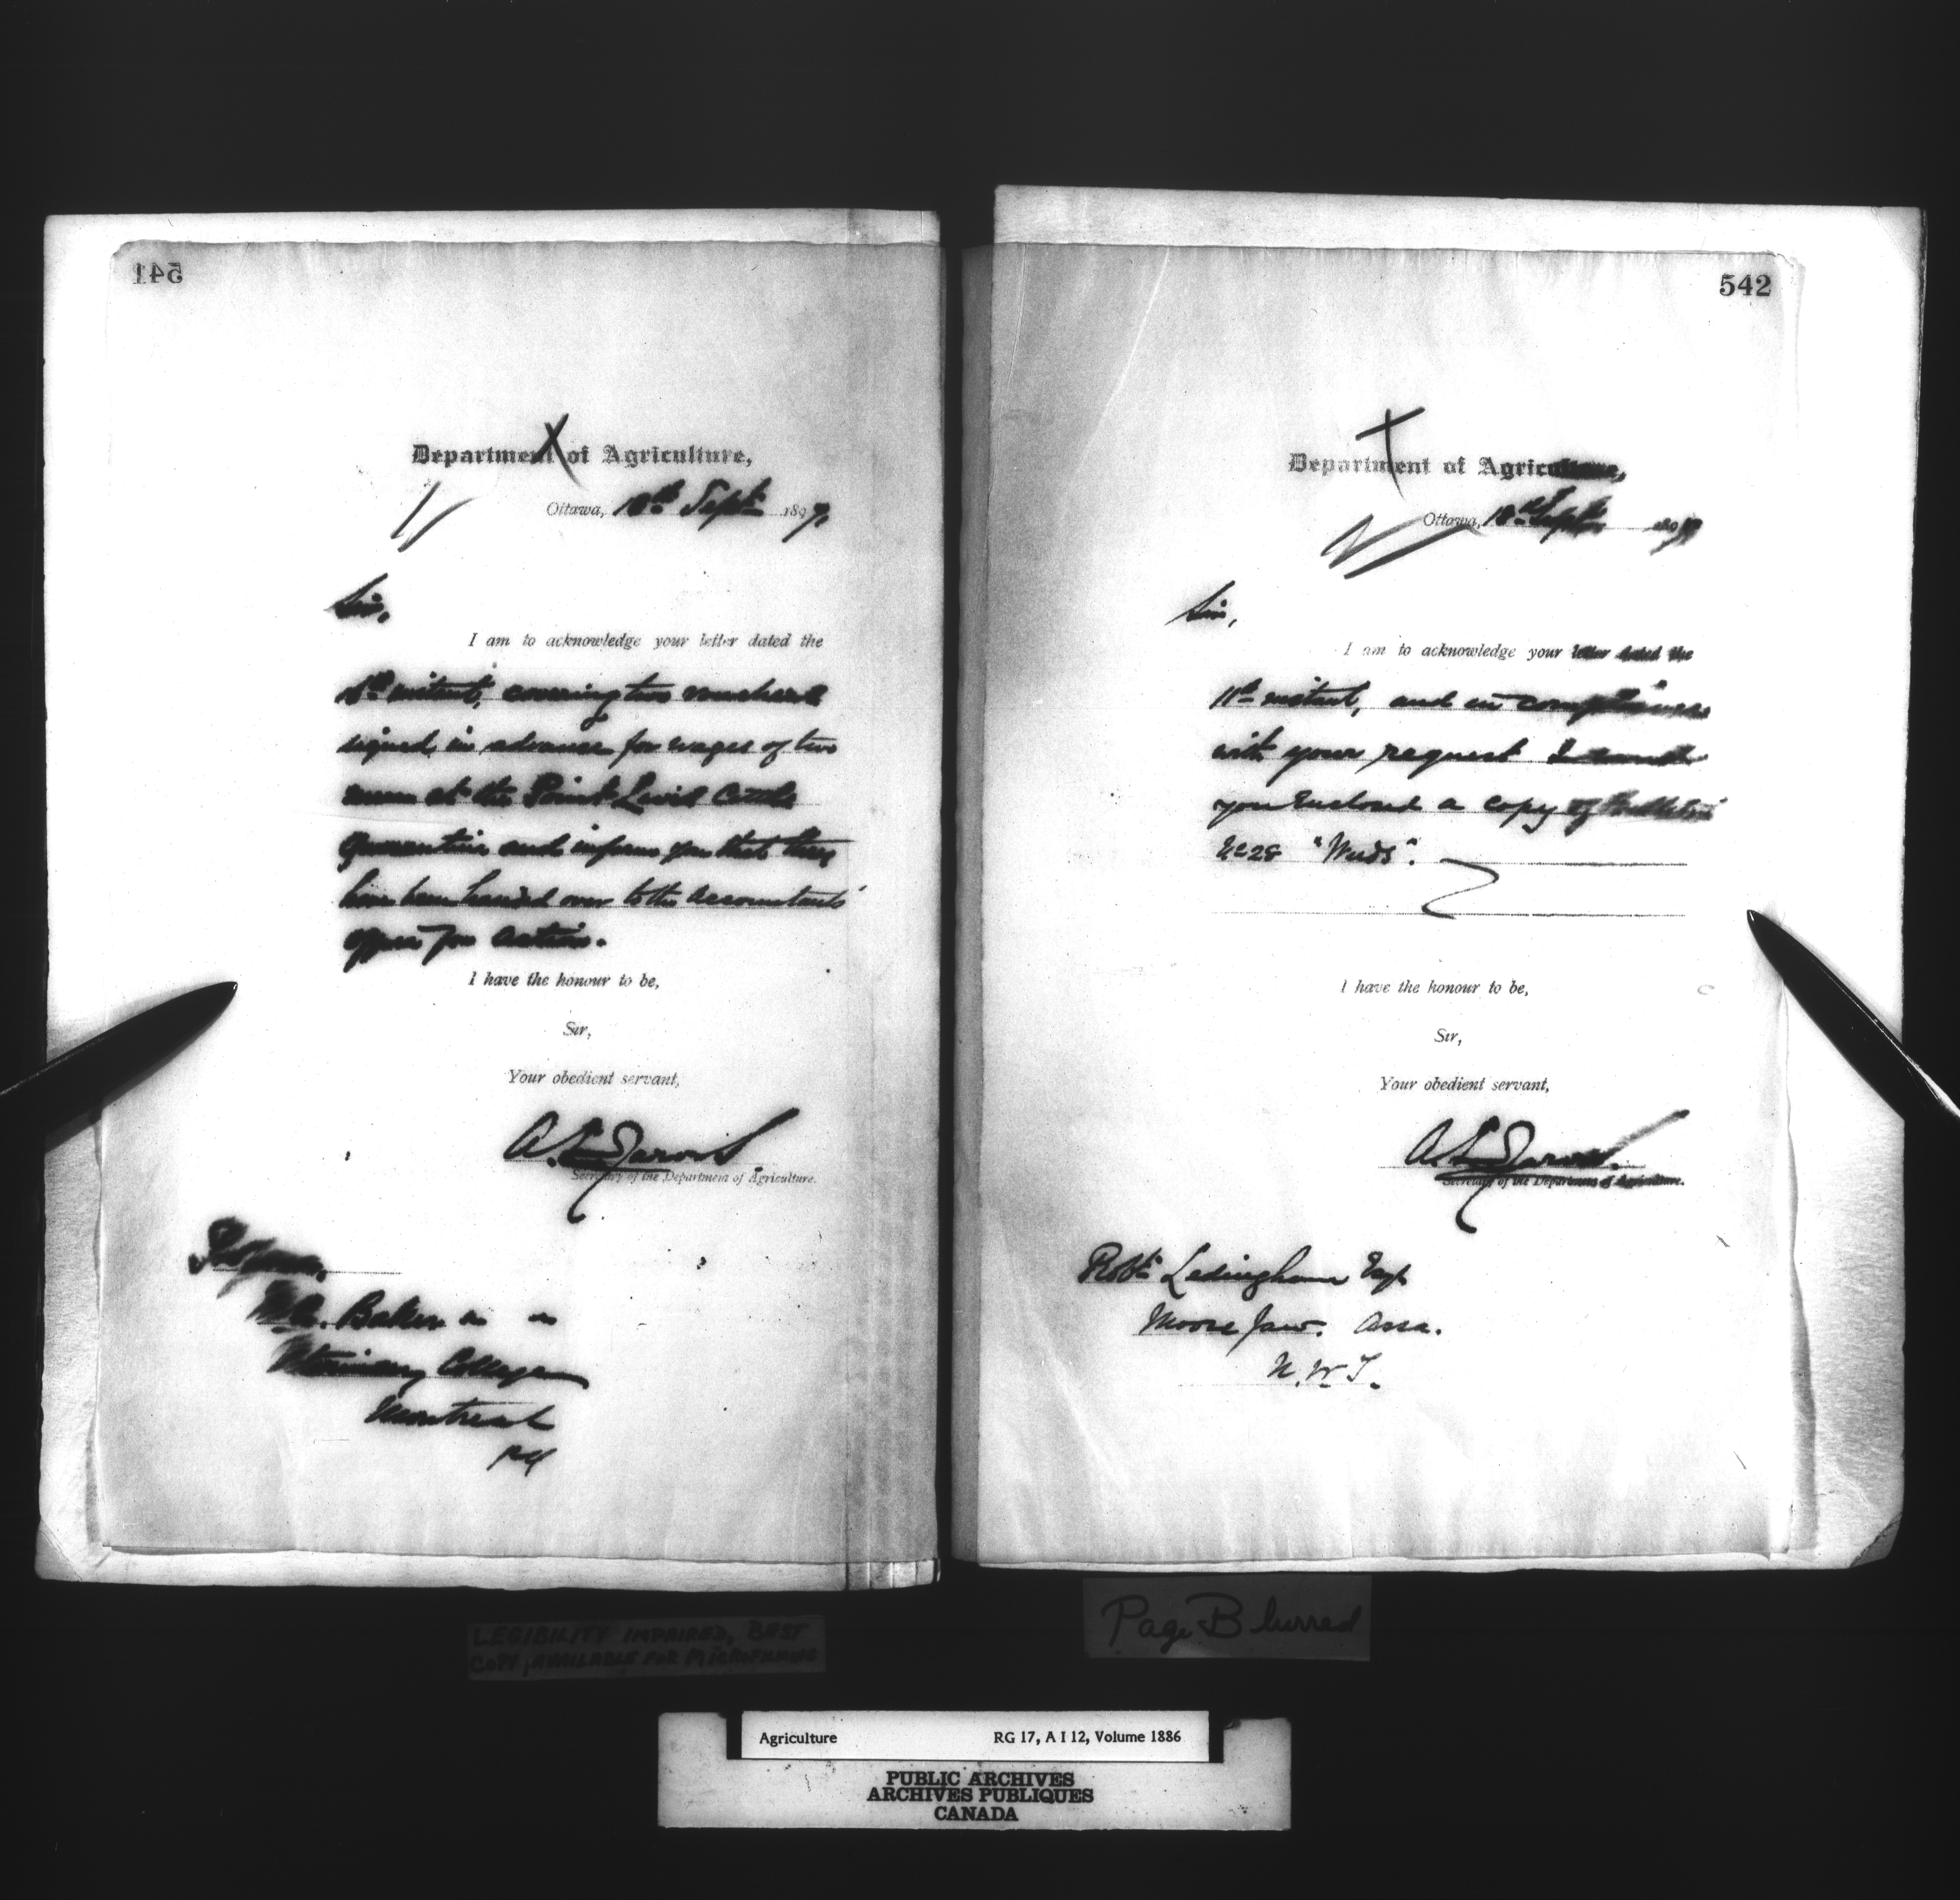 541
Department of Agriculture,
Ottawa, 18th Sept. 1897.
Sir,
I am to acknowledge your letter dated the
instant, covering two vouchers
signed in advance for wages of two
men at the Point Levis Cattle
Quarantine and inform you that they
have been handed over to the Accountant's
office for action.
I have the honour to be,
Sir,
Your obedient servant,
A. L. Jarvis
Secretary of the Department of Agriculture.
Professor,
Baker
Veterinary College
Montreal
P.Q.
542
Department of Agriculture,
Ottawa, 18th Sept. 1897
Sir,
I am to acknowledge your letter dated the
11th instant, and in compliance
with your request I send
you enclosed a copy of Bulletin
No 28 "Weeds".
I have the honour to be,
Sir,
Your obedient servant,
A. L. Jarvis.
Secretary of the Department of Agriculture.
Robt. Ledingham Esq
Moose Jaw. Assa.
N.W.T.
LEGIBILITY IMPAIRED, BEST
COPY AVAILABLE FOR MICROFILMING
Page Blurred
Agriculture RG 17, A I 12, Volume 1886
PUBLIC ARCHIVES
ARCHIVES PUBLIQUES
CANADA